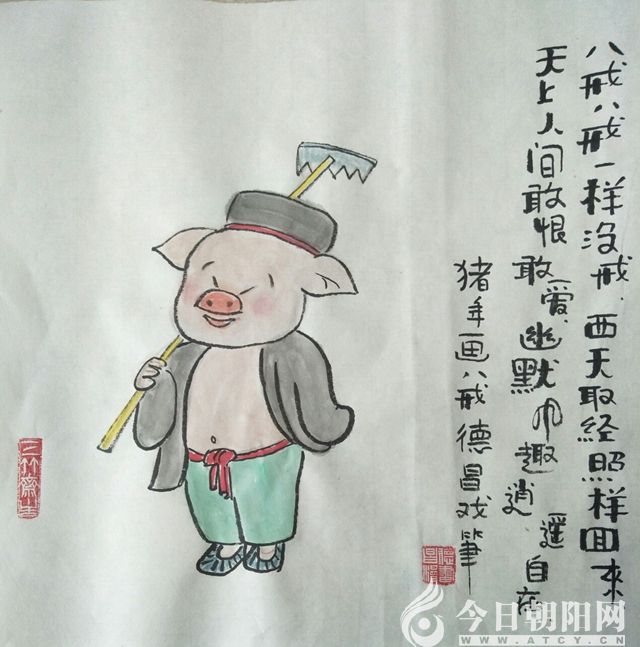 八戒八戒一样没戒.西天取经照样回来
天上人间敢恨敢爱.幽默风趣逍遥自在.
猪年画八戒德昌戏笔
德昌书
今日朝阳网
WWW.ATCY.GOV.CN